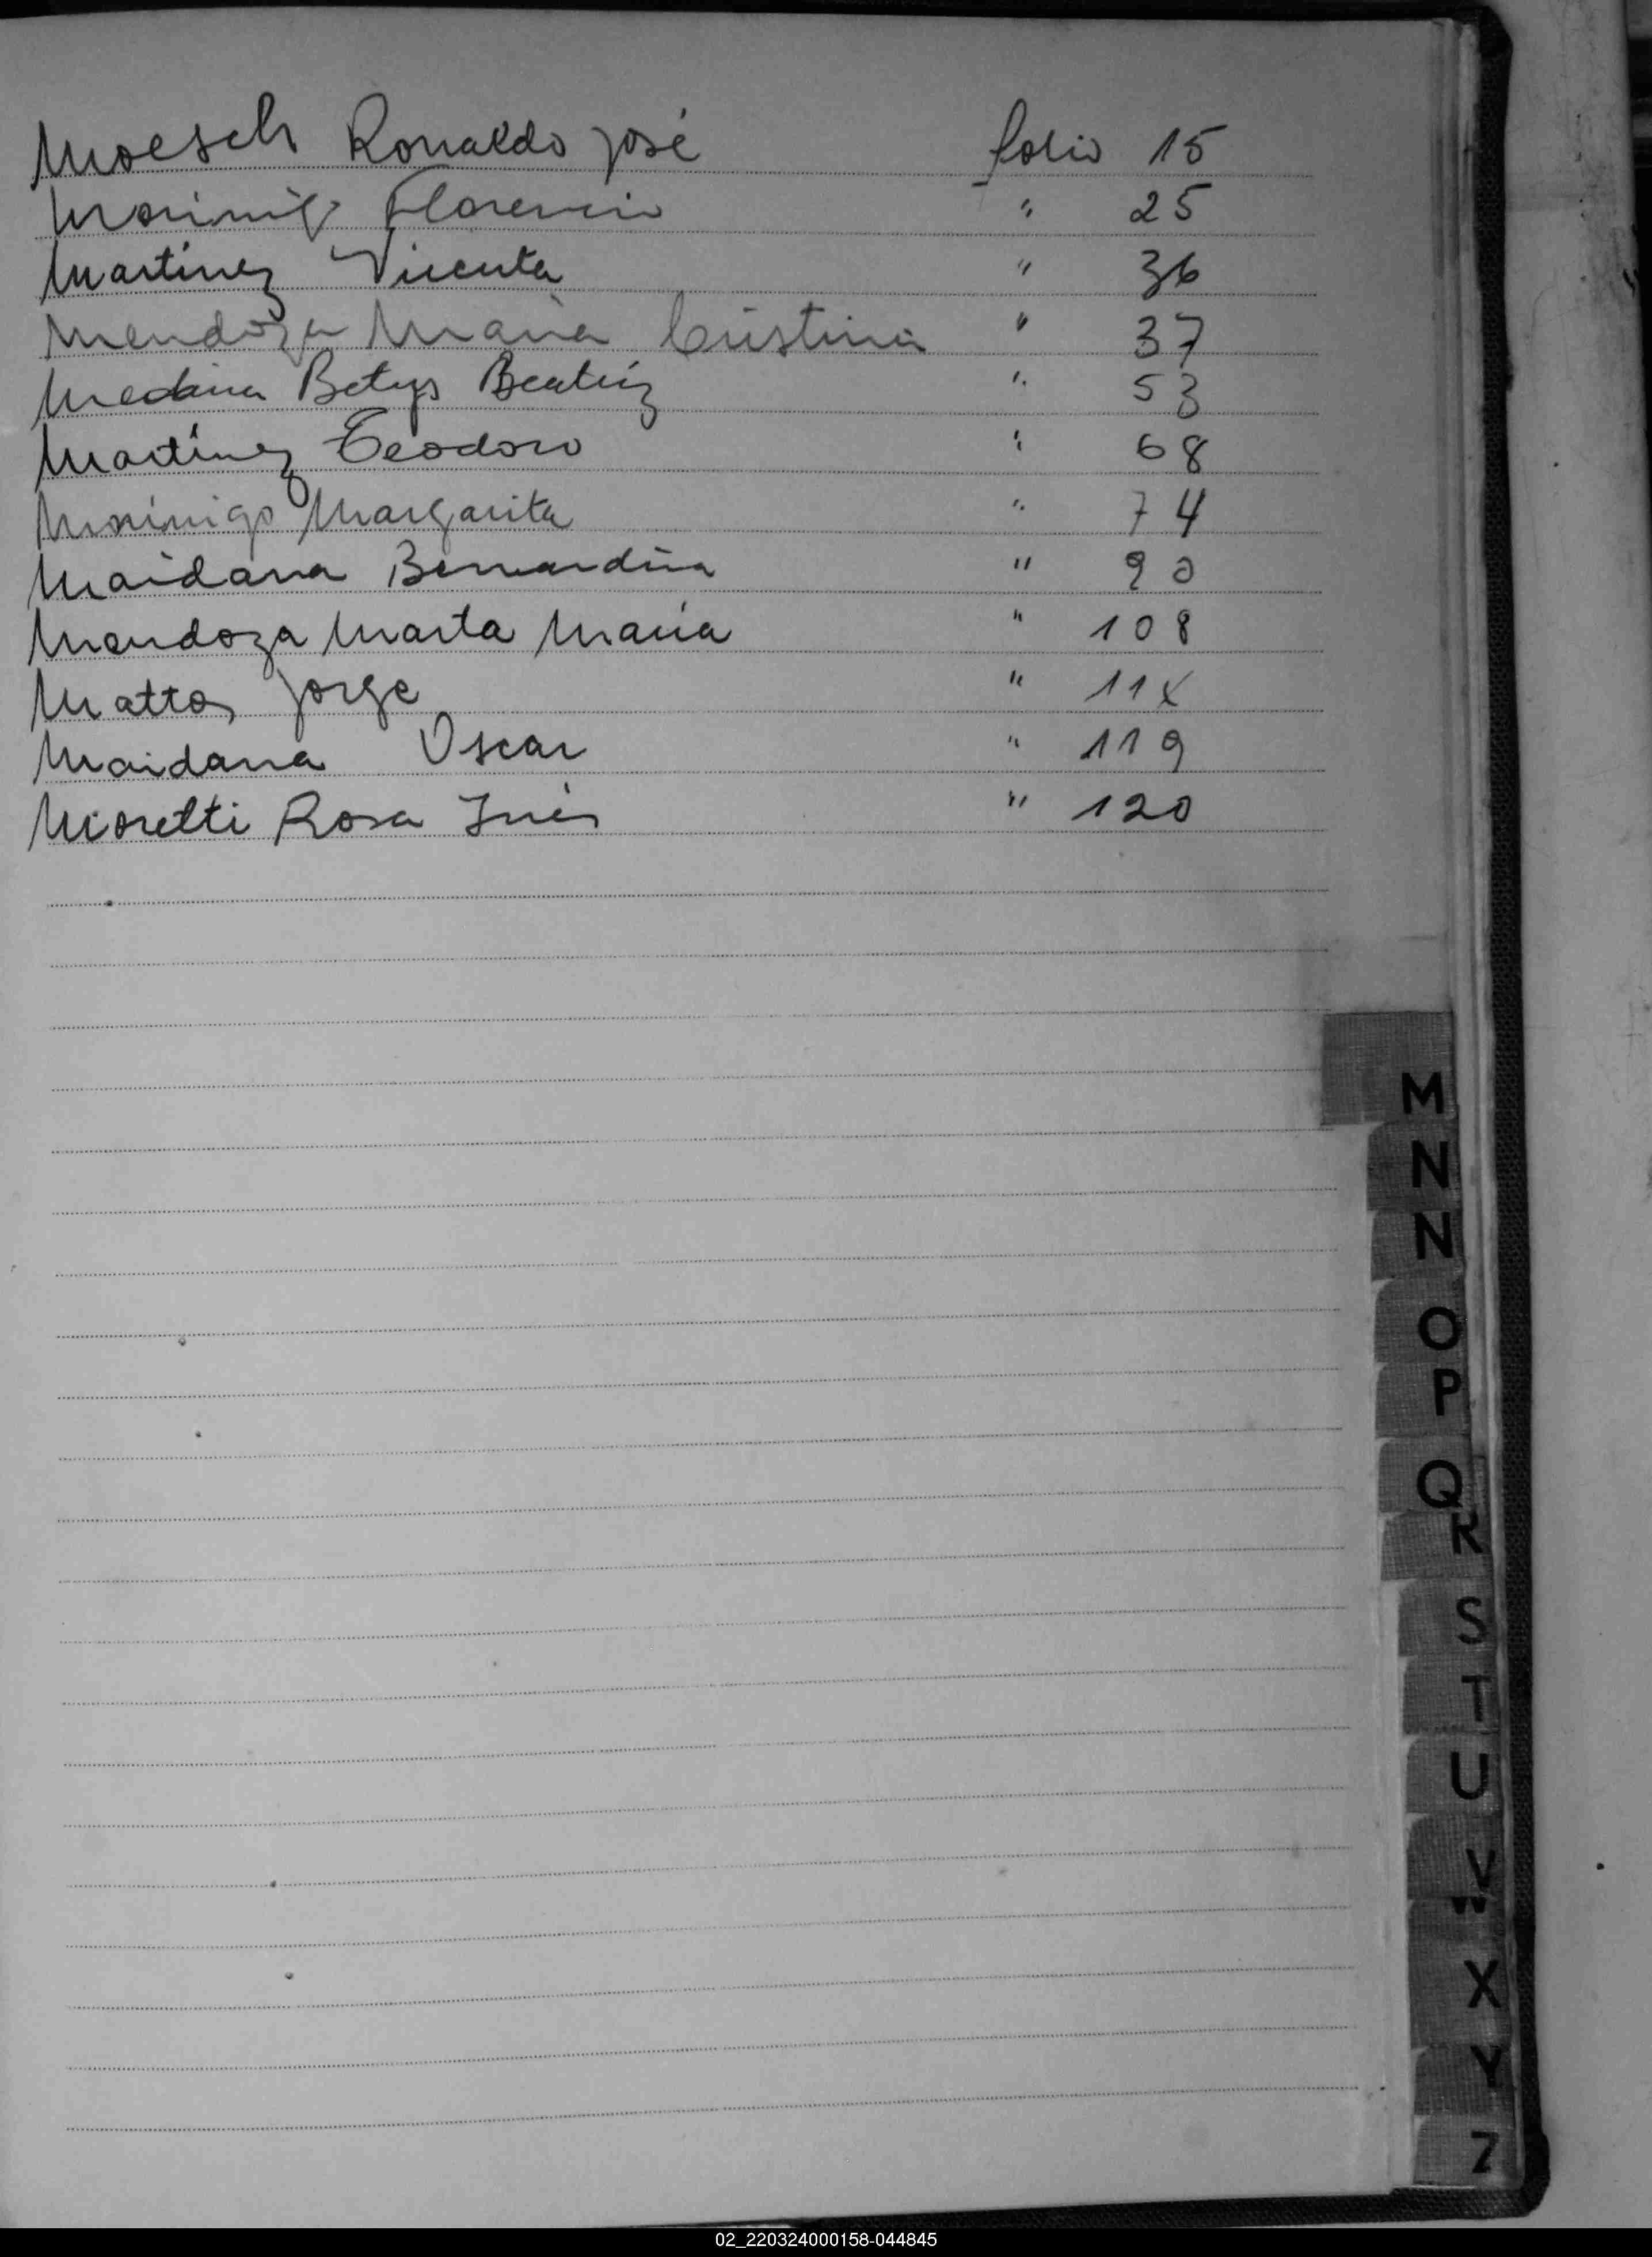 Moesch Ronaldo José folio 15
Morinigo Florencio " 25
Martinez Vicenta " 36
Mendoza Maria Cristina " 37
Medina Betys Beatriz " 53
Martínez Teodoro " 68
Morinigo Margarita " 74
Maidana Bernardina " 90
Mendoza Marta María " 108
Mattos Jorge " 11
Maidana Oscar " 119
Moretti Rosa Inés " 120
M
N
N
O
P
Q
R
S
T
U
V
W
X
Y
Z
02_220324000158-044845